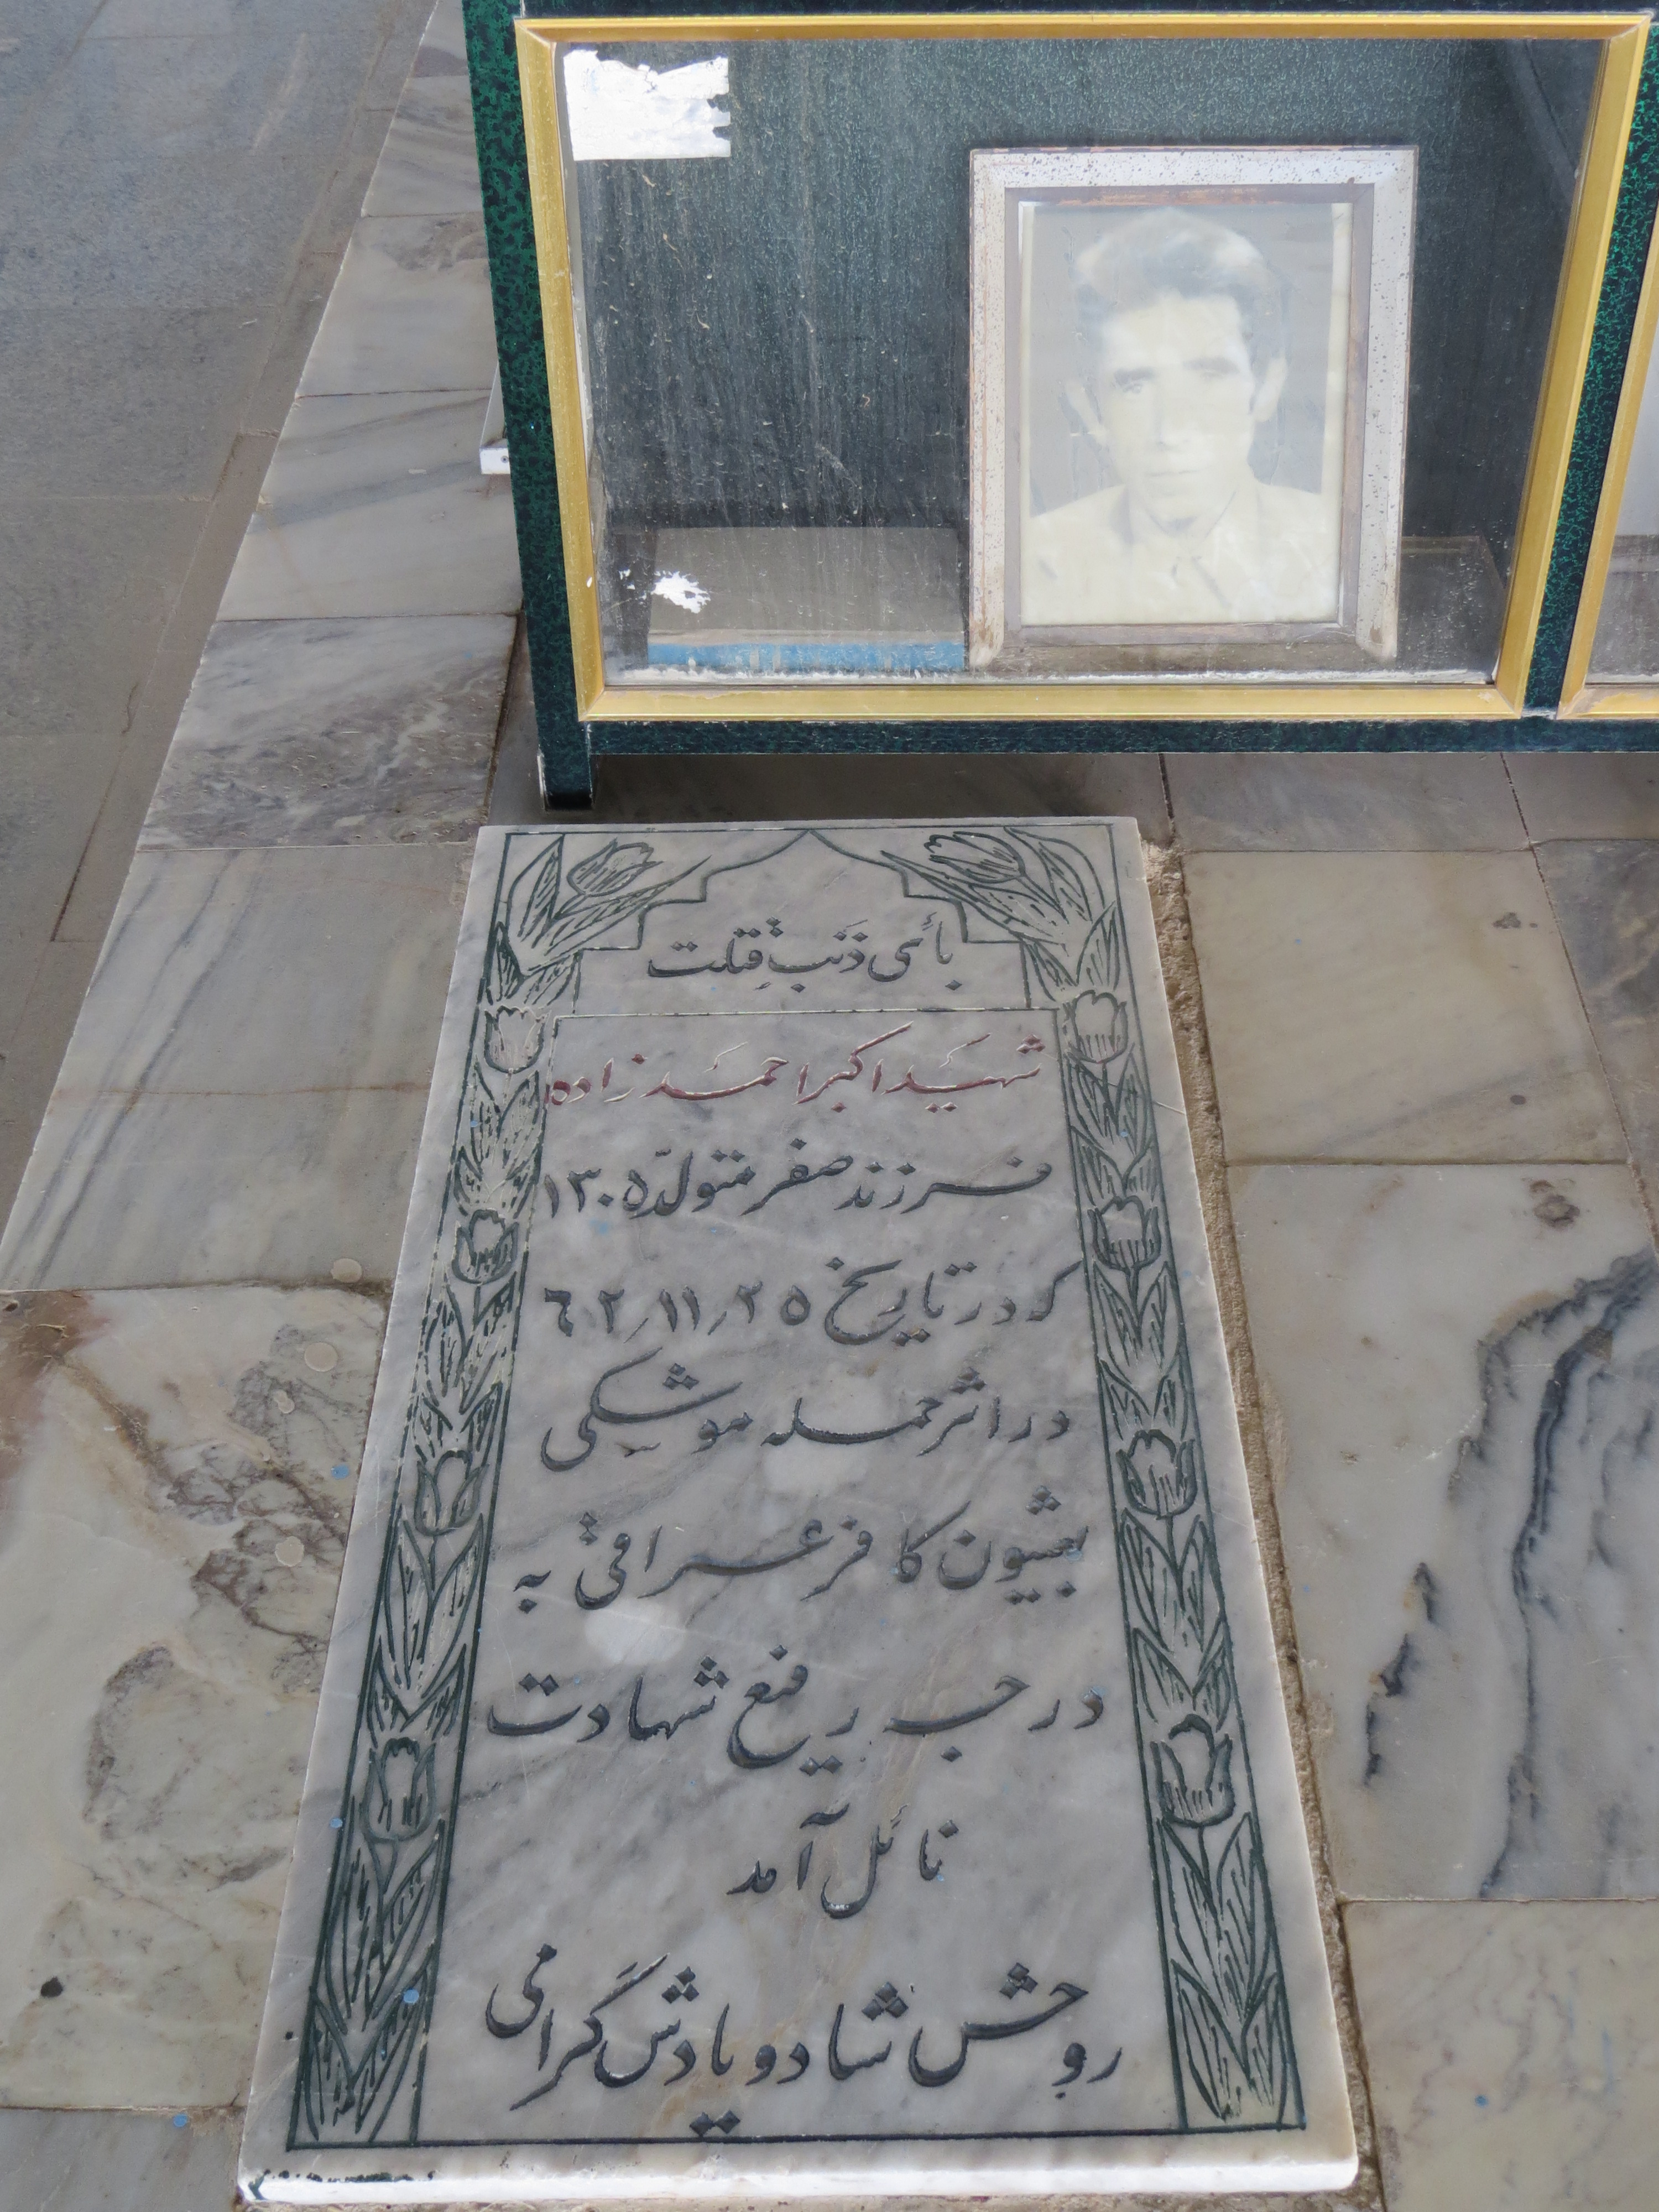 بأی ذنب قتلت
شهید اکبر احمدزاده
فرزند صفر متولد ۱۳۰۵
که در تاریخ ۲۵/۱۱/۶۲
در اثر حمله موشکی
بعثیون کافر عراقی به
درجه رفیع شهادت
نائل آمد
روحش شاد و یادش گرامی